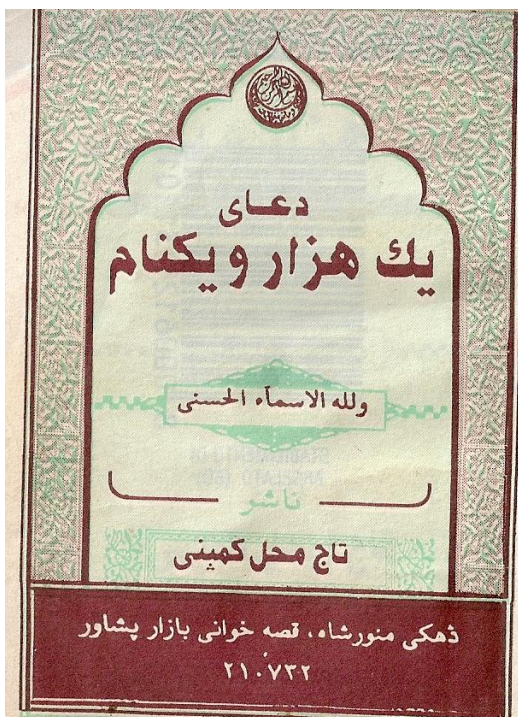 دعای
یك هزار و یکنام
ولله الاسمآء الحسنی
ناشر
تاج محل کمپنی
ذهکی منورشاه، قصه خوانی بازار پشاور
۲۱۰۷۳۲